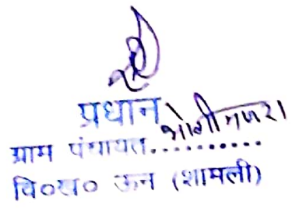 प्रधान
ग्राम पंचायत..........
वि०ख० ऊन (शामली)